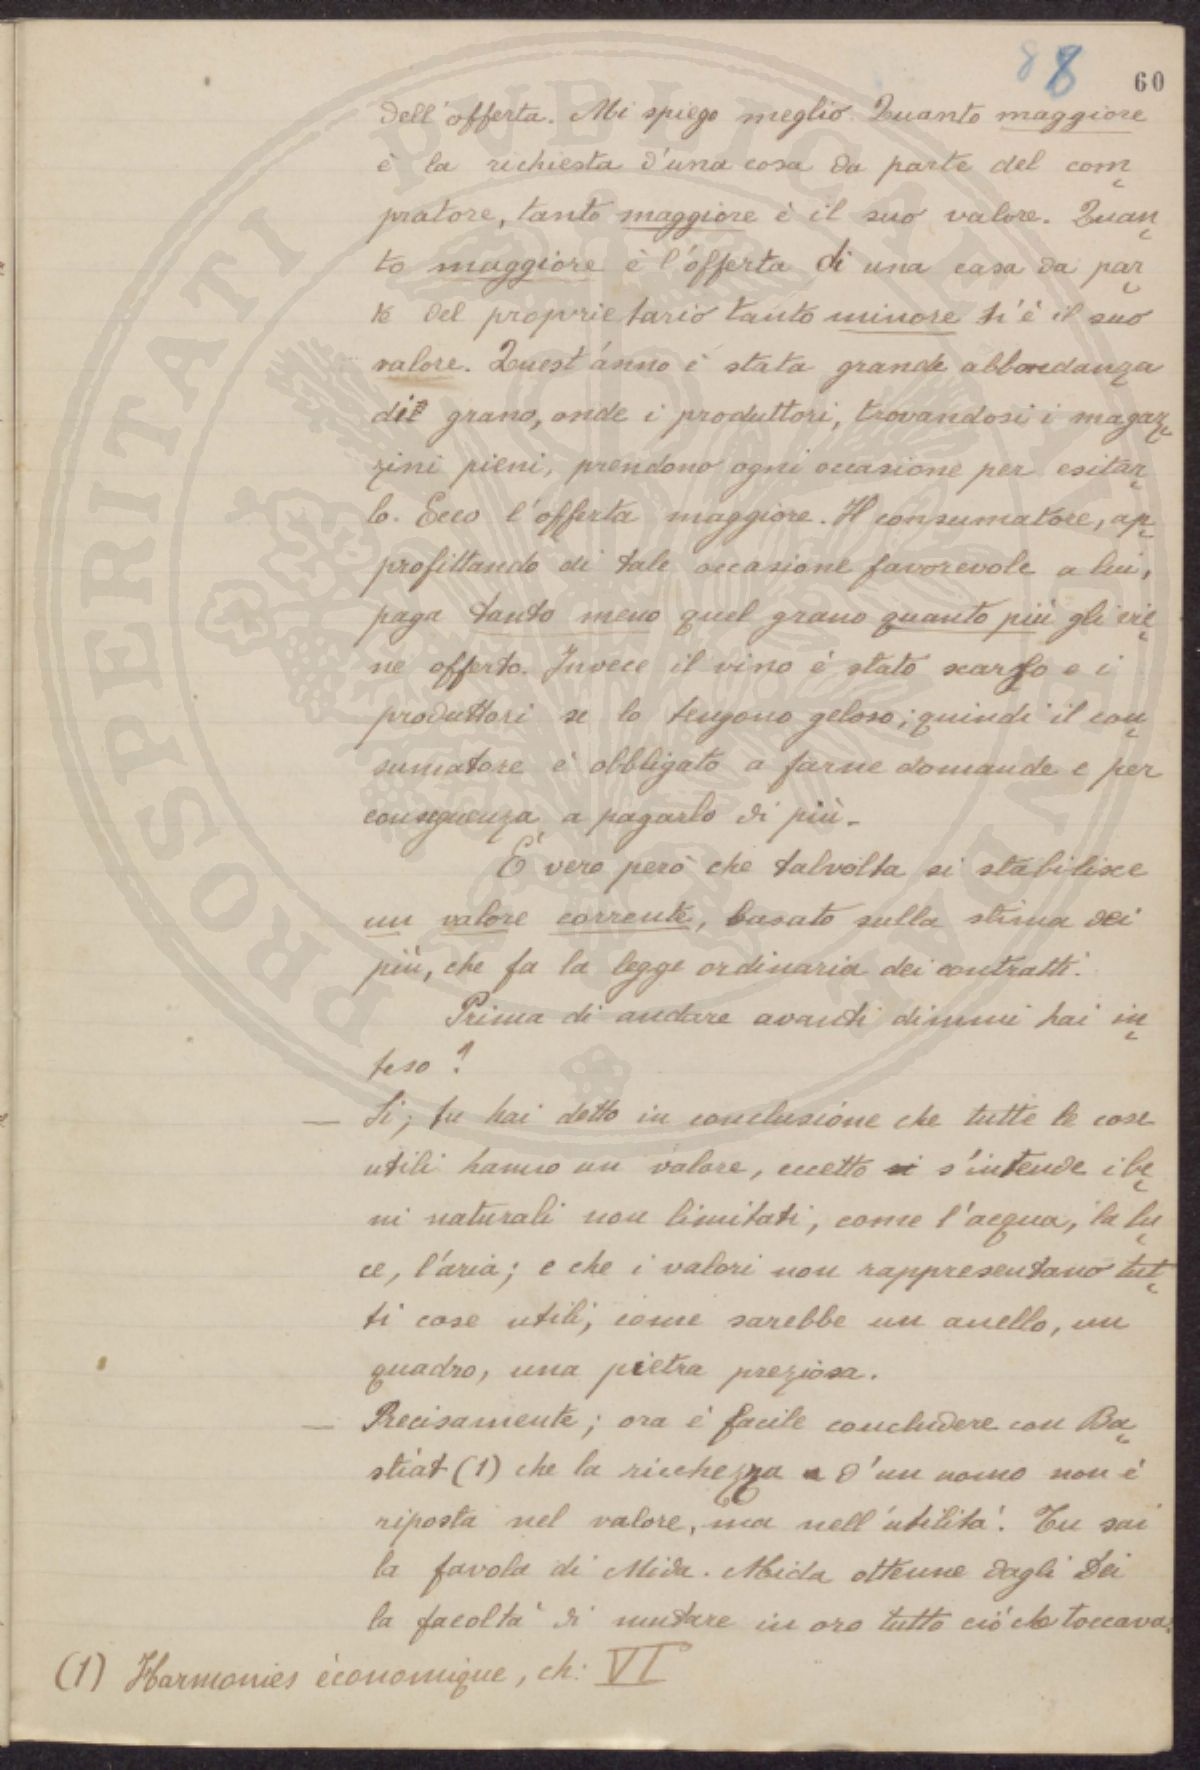 8 8 60
dell'offerta. Mi spiego meglio. Quanto maggiore
è la richiesta d'una cosa da parte del com
pratore, tanto maggiore è il suo valore. Quan
to maggiore è l'offerta di una casa da par
te del proprietario tanto minore n'è il suo
valore. Quest'anno è stata grande abbondanza
di grano, onde i produttori, trovandosi i magaz
zini pieni, prendono ogni occasione per esitar
lo. Ecco l'offerta maggiore. Il consumatore, ap
profittando di tale occasione favorevole a lui,
paga tanto meno quel grano quanto più gli vie
ne offerto. Invece il vino è stato scarso e i
produttori se lo tengono geloso; quindi il con
sumatore è obbligato a farne domande e per
conseguenza a pagarlo di più.
È vero però che talvolta si stabilisce
un valore corrente, basato sulla stima dei
più, che fa la legge ordinaria dei contratti.
Prima di andare avanti dimmi hai in
teso?
— Si; tu hai detto in conclusione che tutte le cose
utili hanno un valore, eccetto s'intende i be
ni naturali non limitati, come l'acqua, la lu
ce, l'aria; e che i valori non rappresentano tut
ti cose utili, come sarebbe un anello, un
quadro, una pietra preziosa.
— Precisamente; ora è facile concludere con Ba
stiat (1) che la ricchezza d'un uomo non è
riposta nel valore, ma nell'utilità. Tu sai
la favola di Mida. Mida ottenne dagli Dei
la facoltà di mutare in oro tutto ciò che toccava.
(1) Harmonies économique, ch: VI
PROSPERITATI PUBLICAE AUGENDAE